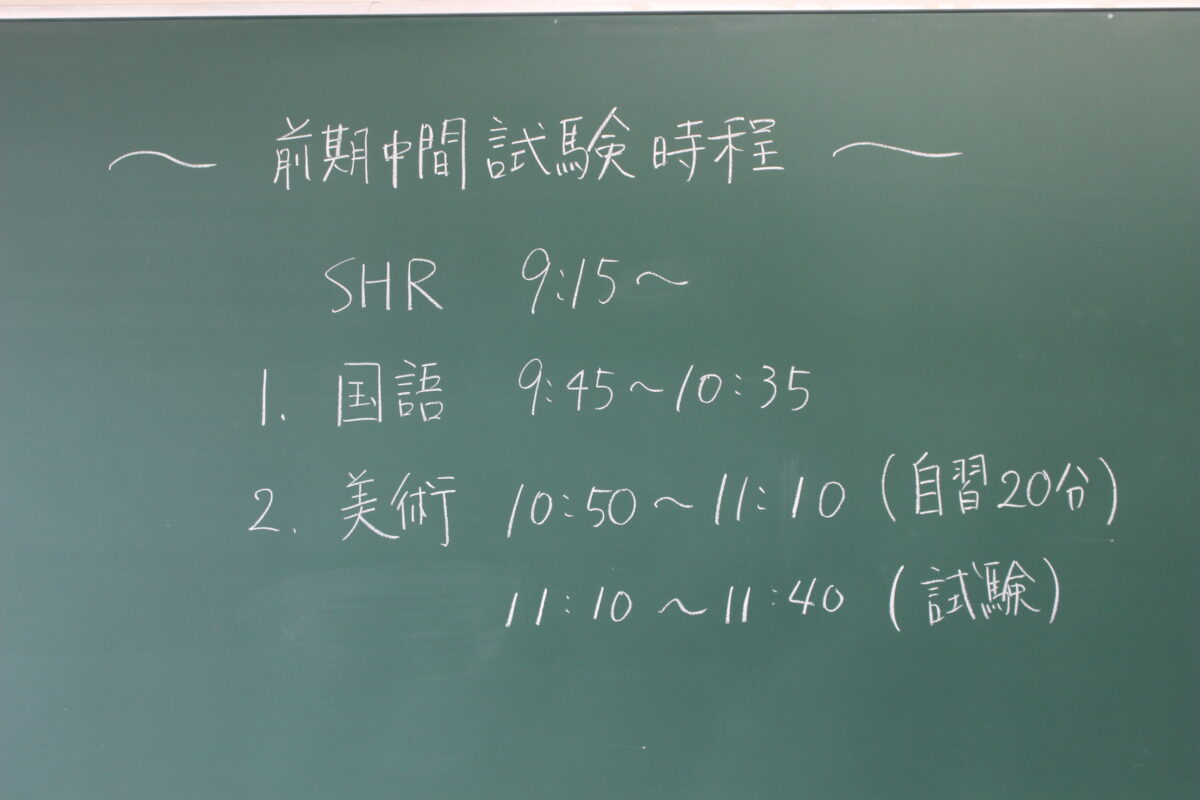 ～ 前期中間試験時程 ～
SHR 9:15～
1. 国語 9:45～10:35
2. 美術 10:50～11:10 (自習20分)
11:10～11:40 (試験)